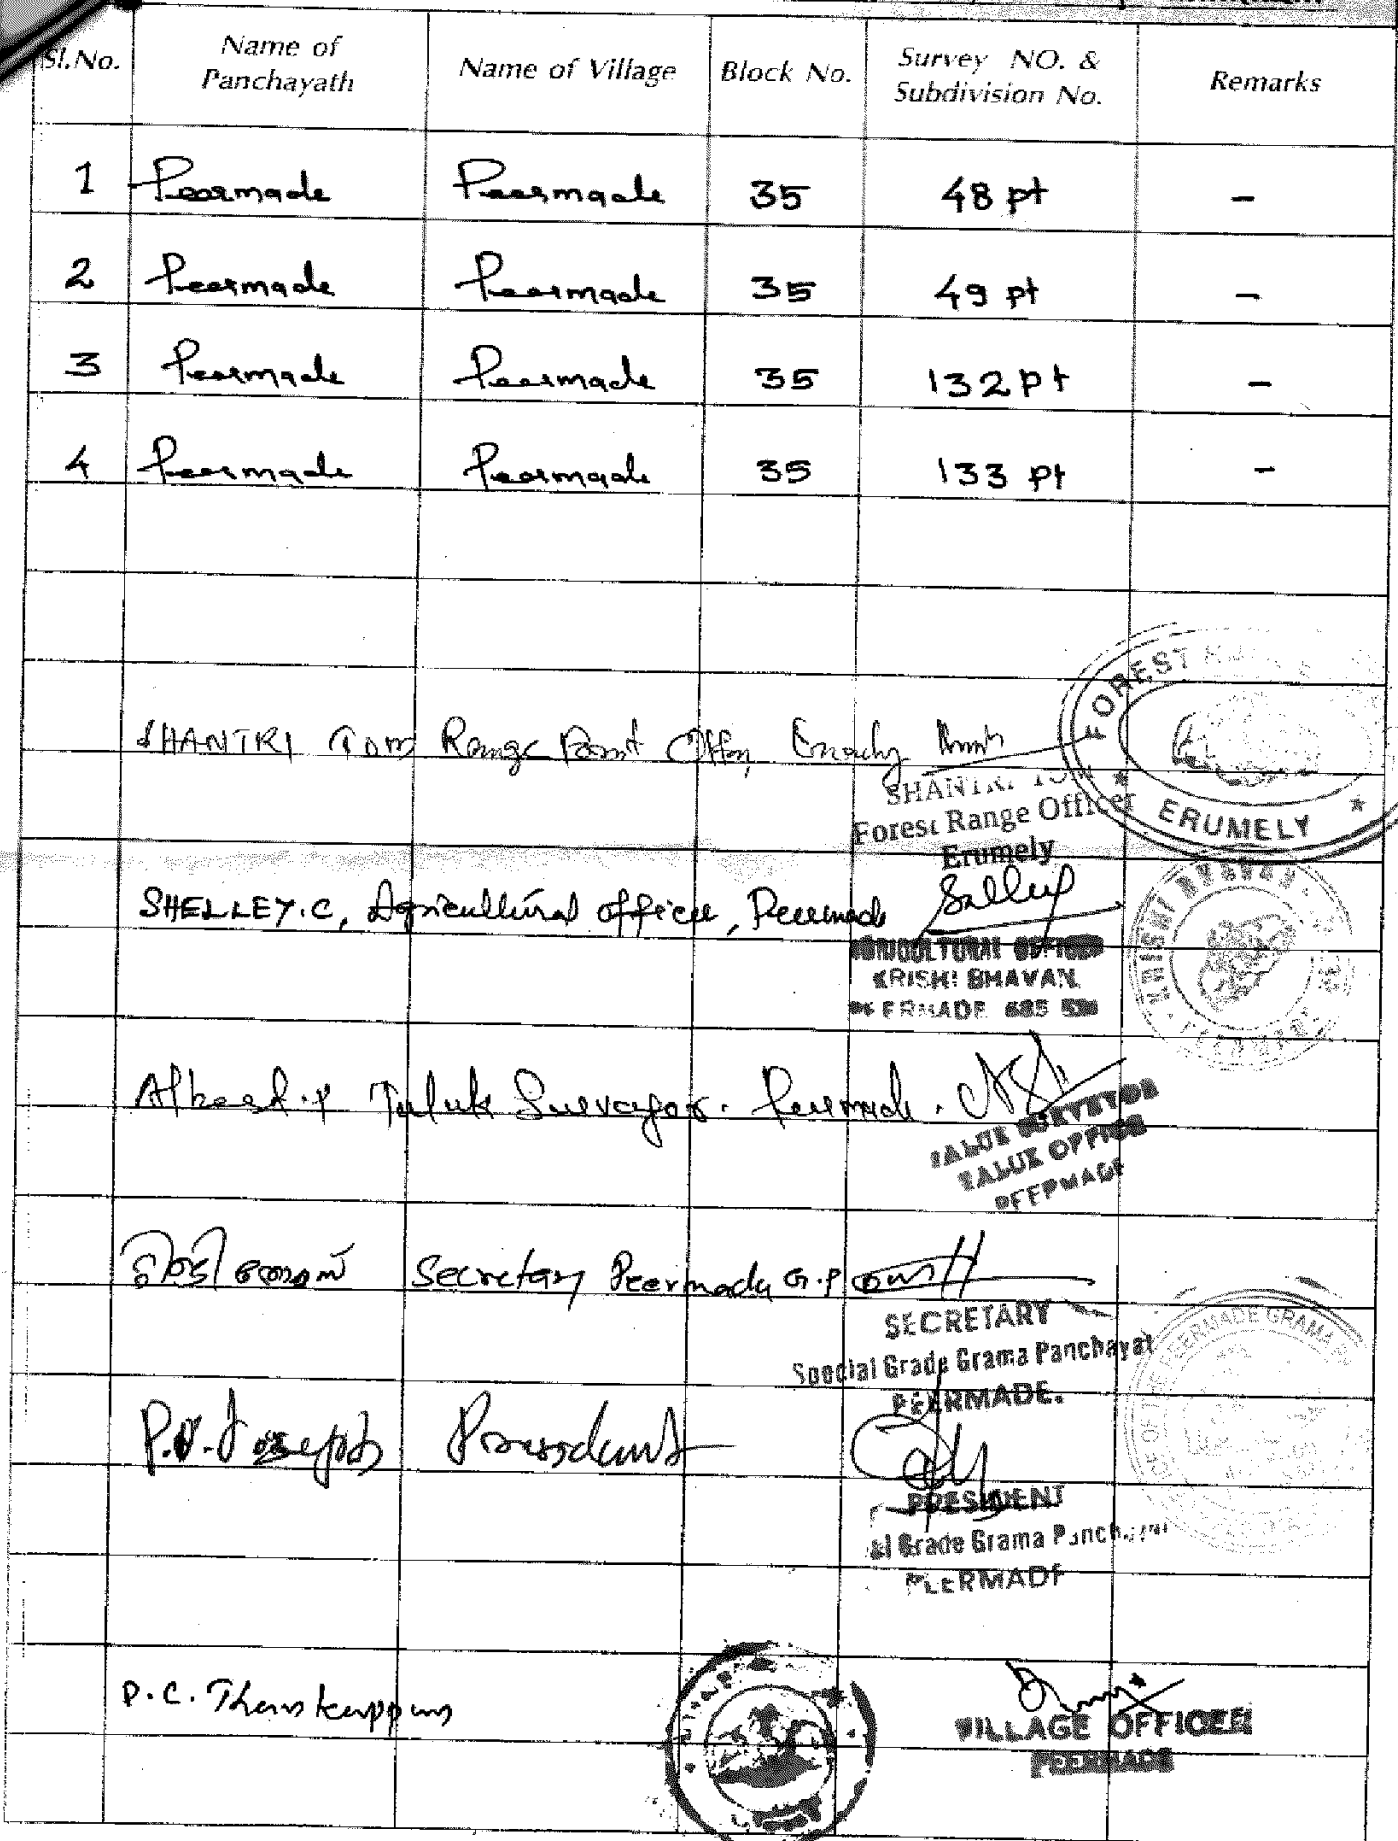 Sl.No. Name of Panchayath Name of Village Block No. Survey NO. & Subdivision No. Remarks
1 Peermade Peermade 35 48 pt -
2 Peermade Peermade 35 49 pt -
3 Peermade Peermade 35 132 pt -
4 Peermade Peermade 35 133 pt -
FOREST
ERUMELY
SHANTRI Tom Range Forest Offr, Erumely
SHANTRI TOM
Forest Range Officer
Erumely
SHELLEY.C, Agricultural officer, Peermade
AGRICULTURAL OFFICER
KRISHI BHAVAN
PEERMADE 685 531
KRISHI BHAVAN
PEERMADE
Taluk Surveyor. Peermade.
TALUK SURVEYOR
TALUK OFFICE
PEERMADE
Secretary Peermade G.P
SECRETARY
Special Grade Grama Panchayat
PEERMADE.
OF THE PEERMADE GRAMA
P.V. Joseph President
PRESIDENT
al Grade Grama Panchayat
PEERMADE
P.C. Thankappan
VILLAGE OFFICER
PEERMADE